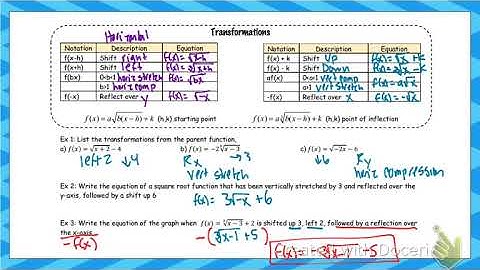 Transformations
Horizontal
Notation Description Equation
f(x-h) Shift right f(x)=√x-h
f(x+h) Shift left f(x)=√x+h
f(bx) 0<b<1 horiz stretch f(x)=√bx
b>1 horiz comp
f(-x) Reflect over y f(x)=√-x
Notation Description Equation
f(x) + k Shift Up f(x)=√x+k
f(x) - k Shift Down f(x)=√x-k
af(x) 0<a<1 vert comp f(x)=a√x
a>1 vert stretch
-f(x) Reflect over x f(x)=-√x
f(x) = a√b(x-h) + k (h,k) starting point
f(x) = a∛b(x-h) + k (h,k) point of inflection
Ex 1: List the transformations from the parent function.
a) f(x) = √x+2 - 4 b) f(x) = -2∛x-3 c) f(x) = √-2x - 6
left 2 ↓4 Rx →3 ↓6 Ry
vert stretch horiz compression
Ex 2: Write the equation of a square root function that has been vertically stretched by 3 and reflected over the
y-axis, followed by a shift up 6
f(x)= 3√-x +6
Ex 3: Write the equation of the graph when f(x) = ∛x-3 + 2 is shifted up 3, left 2, followed by a reflection over
the x-axis
-f(x) -(∛x-1 +5) f(x)= -∛x-1 -5